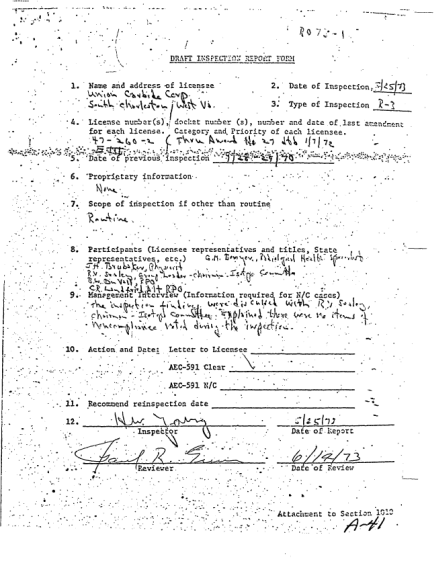 DRAFT INSPECTION REPORT FORM
1. Name and address of licensee
2. Date of Inspection 5/25/73
Union Carbide Corp.
South Charleston, West Va.
3. Type of Inspection R-3
4. License number(s), docket number (s), number and date of last amendment
for each license. Category and Priority of each licensee.
47-260-2 ( Thru Amend No 27 dtd 1/7/72
5. Date of previous inspection
6. Proprietary information
None
7. Scope of inspection if other than routine
Routine
8. Participants (Licensee representatives and titles, State
representatives, etc.)
9. Management interview (Information required for N/C cases)
the inspection findings were discussed with R.V.
chairman - Isotope Committee. Explained there were no items of
noncompliance noted during the inspection.
10. Action and Date: Letter to Licensee
AEC-591 Clear
AEC-591 N/C
11. Recommend reinspection date
12.
5/25/73
Inspector
Date of Report
Paul R.
6/14/73
Reviewer
Date of Review
Attachment to Section 1010
A-41